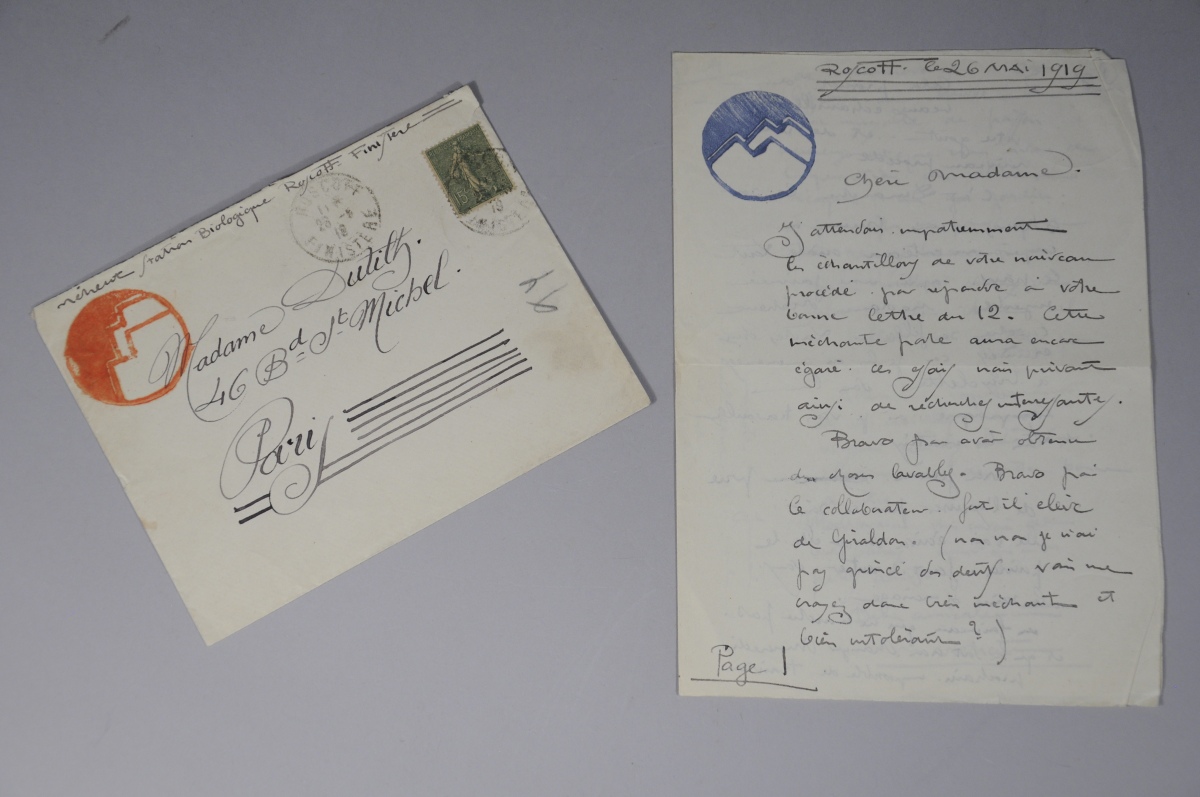 Méheut Station Biologique Roscoff. Finistère
ROSCOFF
FINISTERE
Madame Dutilh.
46 Bd St Michel.
Paris
Roscoff. le 26 Mai 1919
Chère Madame.
J'attendais impatiemment
les échantillons de votre nouveau
procédé. pour répondre à votre
bonne lettre du 12. Cette
méchante poste aura encore
égaré. ces essais nous privant
ainsi. de recherches intéressantes.
Bravo pour avoir obtenu
des choses lavables. Bravo pour
le collaborateur. fut il élève
de Giraldon. (non non je n'ai
pas grincé des dents. vous me
croyez donc très méchant et
bien intolérant ?)
Page 1